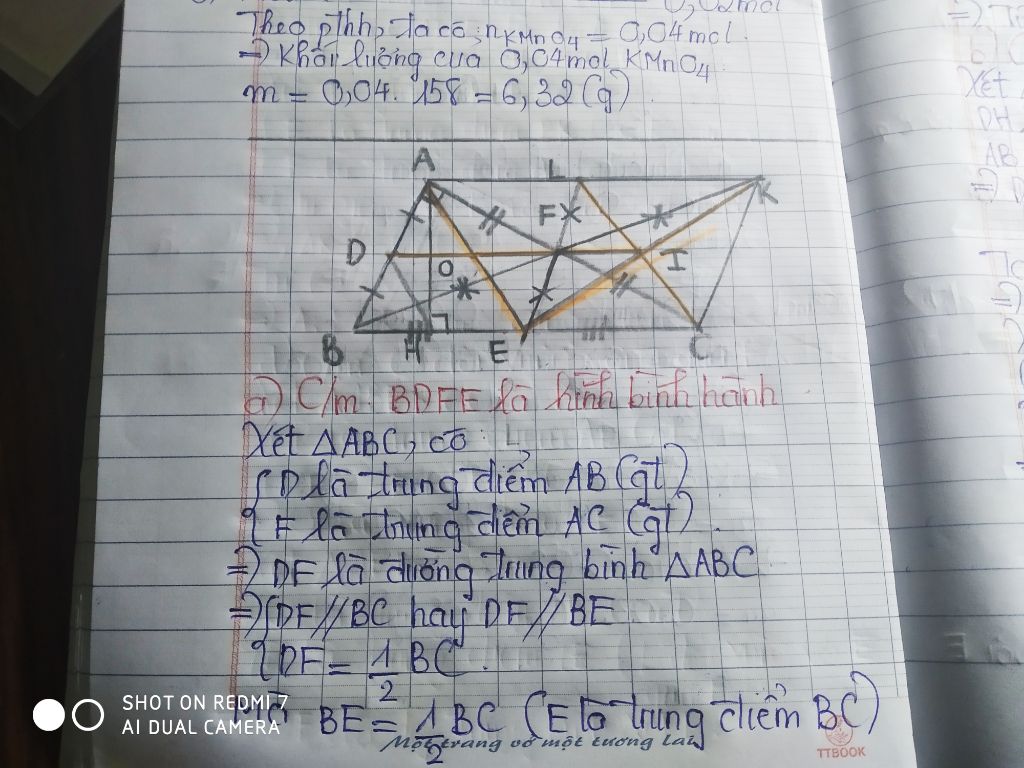 0,02mol
Theo pthh, ta có: nKMnO4 = 0,04mol.
=> Khối lượng của 0,04mol KMnO4
m = 0,04. 158 = 6,32(g)
A L K
D F I
O
B H E C
a) C/m BDFE là hình bình hành
Xét ΔABC, có:
{ D là trung điểm AB (gt)
{ F là trung điểm AC (gt)
=> DF là đường trung bình ΔABC
=> { DF // BC hay DF // BE
{ DF = 1/2 BC.
BE = 1/2 BC (E là trung điểm BC)
Một trang vở một tương lai
TTBOOK
SHOT ON REDMI 7
AI DUAL CAMERA